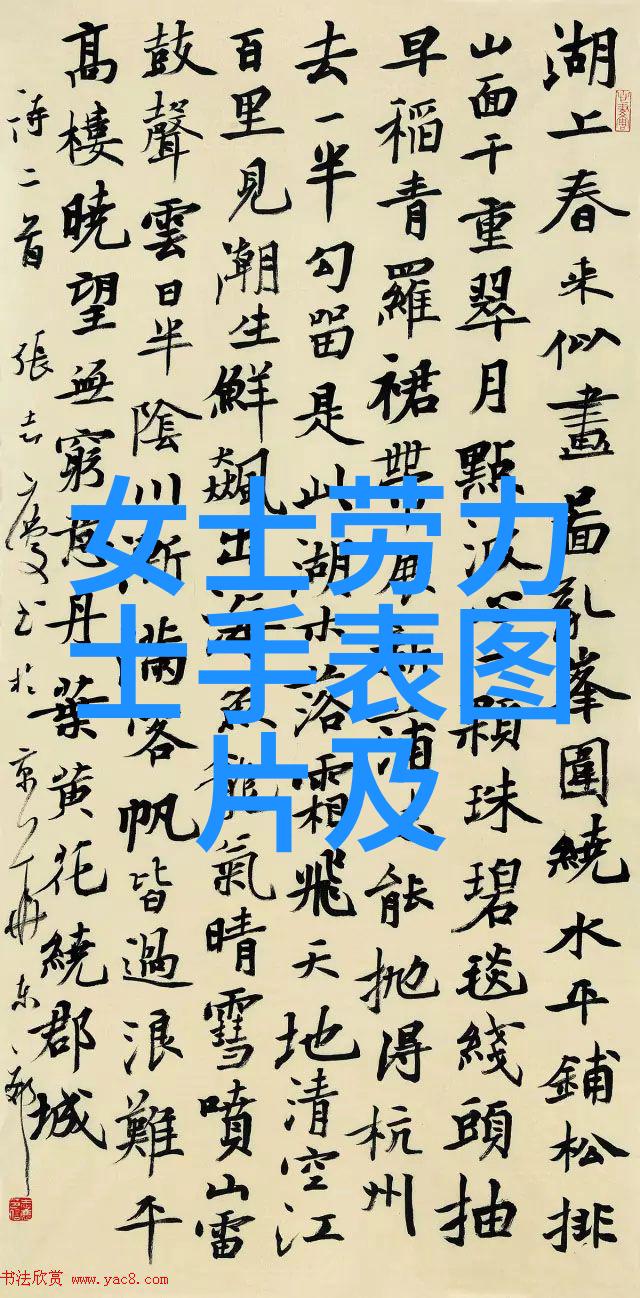 湖上春来似畫啚乱峯圍繞水平鋪松排
山面千重翠月點波心一顆珠碧毯綫頭抽
早稻青羅裙帶展新蒲未能抛得杭州
去一半勾留是此湖木落霜飛天地清空江
百里見潮生鮮飈出海魚龍氣晴雪噴山雷
鼓聲雲日半陰川漸滿客帆皆過浪難平
高樓曉望無窮意丹葉黄花繞郡城
詩二首 張志慶书於京
女士劳力
士手表图
片及
书法欣赏 www.yac8.com